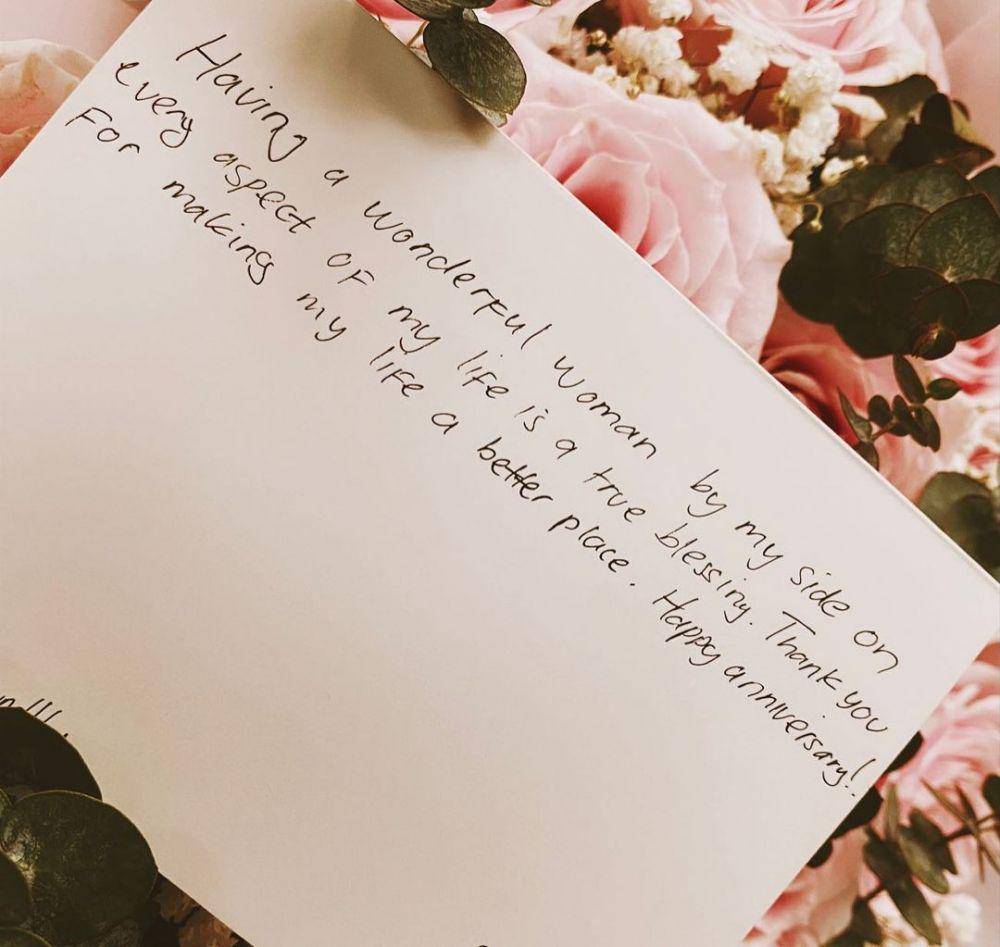 Having a wonderful woman by my side on
every aspect of my life is a true blessing. Thank you
For making my life a better place. Happy anniversary!!